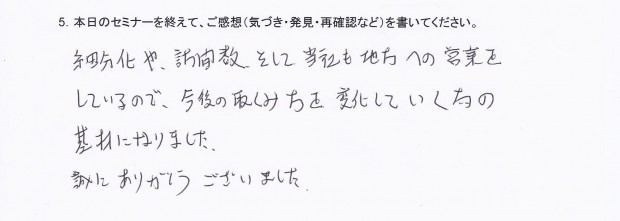 5. 本日のセミナーを終えて、ご感想(気づき・発見・再確認など)を書いてください。
細分化や、訪問数、そして当社も地方への営業を
しているので、今後の取くみ方を変化していく為の
基材になりました、
誠にありがとうございました、